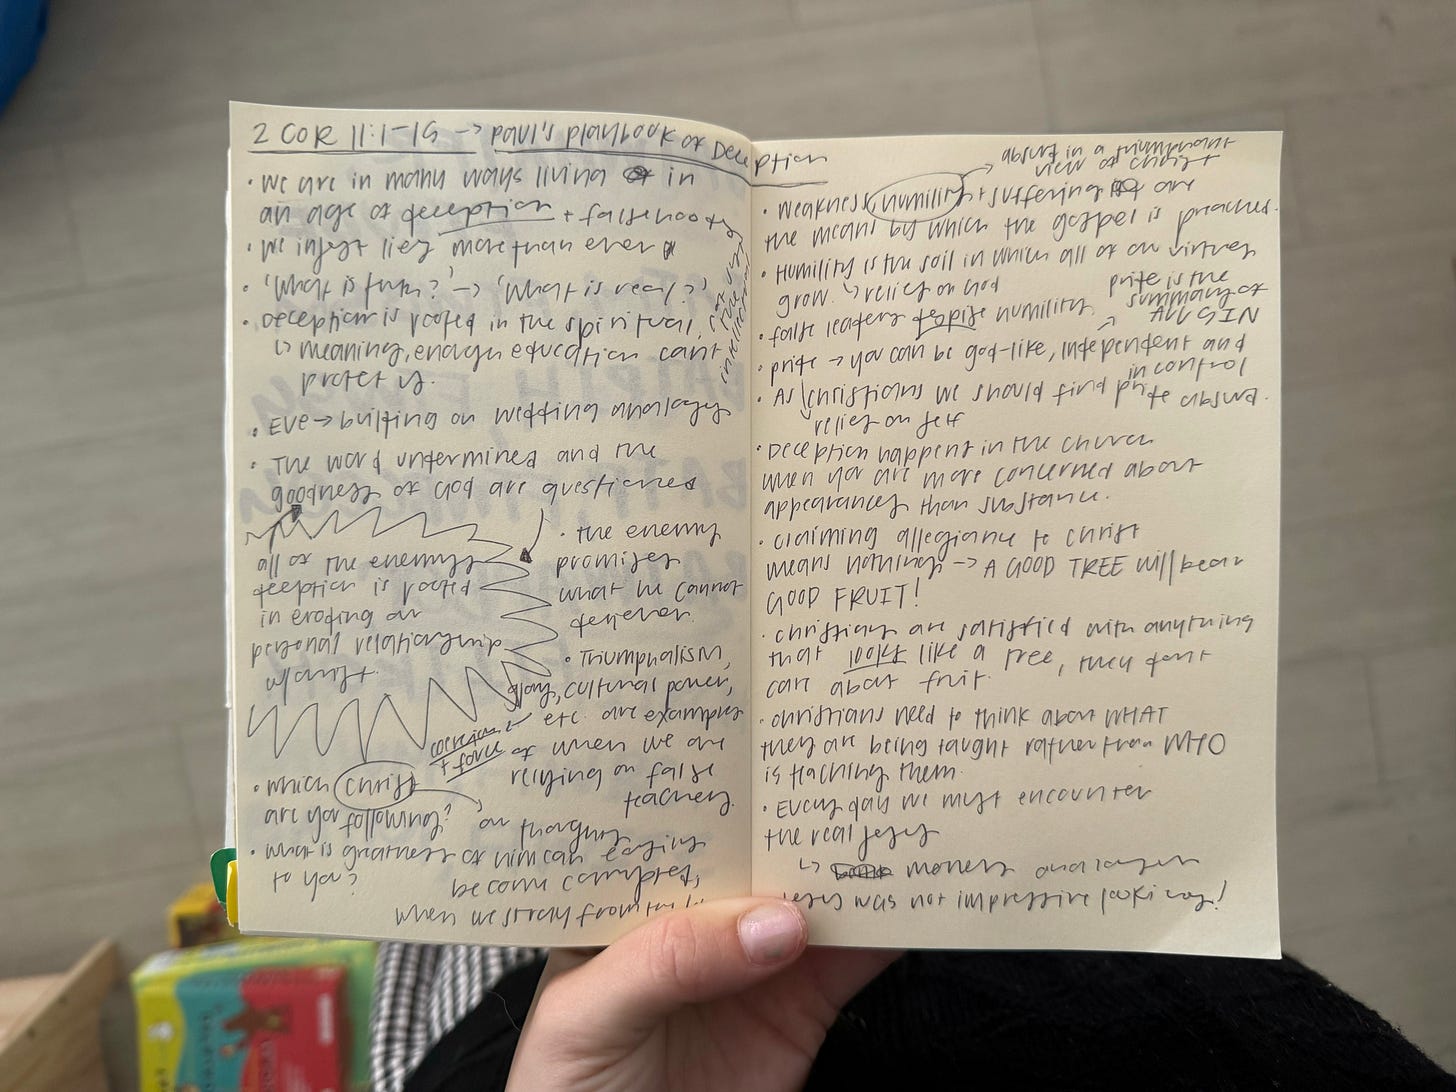 2 COR 11:1-15 → Paul's playbook of Deception
• We are in many ways living in
an age of deception + falsehood
• We ingest lies more than ever
• 'What is truth?' → 'What is real?'
• Deception is rooted in the spiritual,
↳ meaning, enough education can't
protect us.
not true
intellectual
• Eve → building on wedding analogy
• The word undermined and the
goodness of God are questioned
all of the enemy's
deception is rooted
in eroding our
personal relationship
w/ Christ.
• the enemy
promises
what he cannot
deliver.
• Triumphalism,
glory, cultural power,
etc. are examples
of when we are
relying on false
teachers.
coercion
+ force
• Which Christ
are you following?
• What is greatness
to you?
our thoughts
of him can easily
become corrupted,
when we stray from
• Weakness, humility + suffering are
the means by which the gospel is preached.
absurd in a triumphant
view of Christ
• Humility is the soil in which all of our virtues
grow. ↳ relief on God
• false leaders despise humility.
pride is the
summary of
ALL SIN
• pride → you can be god-like, independent and
in control
• As Christians we should find pride absurd.
relief on self
• Deception happens in the church
when you are more concerned about
appearances than substance.
• claiming allegiance to Christ
means nothing → A GOOD TREE will bear
GOOD FRUIT!
• Christians are satisfied with anything
that looks like a tree, they dont
care about fruit.
• Christians need to think about WHAT
they are being taught rather than WHO
is teaching them.
• Every day we must encounter
the real Jesus
↳ modesty and
Jesus was not impressive looking!